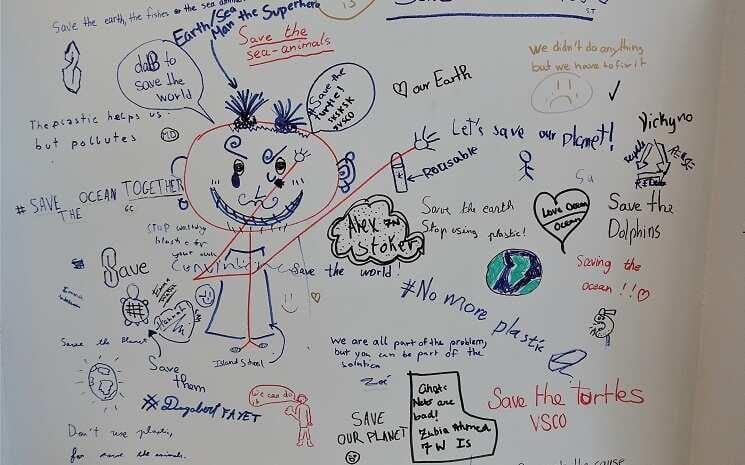 Save the earth, the fishes or the sea animals
Earth/Sea
Man the Superhero
Save the
sea-animals
is
ST
daB to
save the
world
#Save the
turtle!
sksksk
vsco
our Earth
we didn't do anything
but we have to fix it
The plastic helps us
but pollutes
Let's save our planet!
Vickyno
Reusable
#SAVE THE OCEAN TOGETHER
6C
Su
Save the earth
Stop using plastic!
Love Ocean
Ocean
Save the
Dolphins
Alex 7N
Stoker
STOP
plastic for
your own
Convinience
Save
Save the world!
Saving the
ocean!!
#No more plastic
Emma
Hannah
Save the Planet
Island School
Save
them
We are all part of the problem,
but you can be part of the
solution
Zoé
#Dagobert FAYET
We can do
it
Ghost
Nets are
bad!
Zubia Ahmed
7W Is
Save the turtles
VSCO
SAVE
OUR PLANET
Don't use plastic,
for save the animals.
the cause